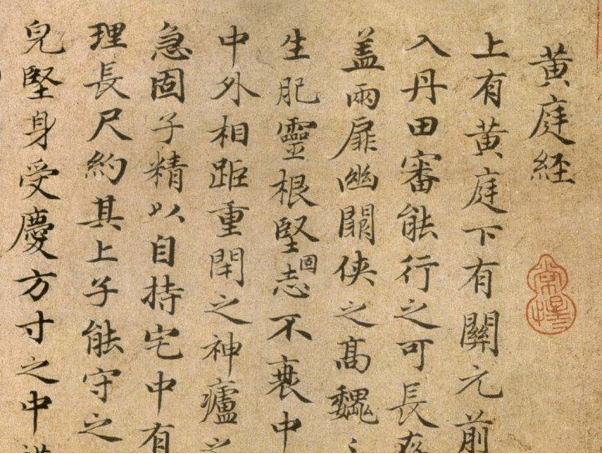 黃庭経
上有黃庭下有關元前
入丹田審能行之可長
盖兩扉幽闗俠之髙魏
生肥靈根堅志不衰中
固
中外相距重閇之神廬之
急固子精以自持宅中有
理長尺約其上子能守之
皃堅身受慶方寸之中